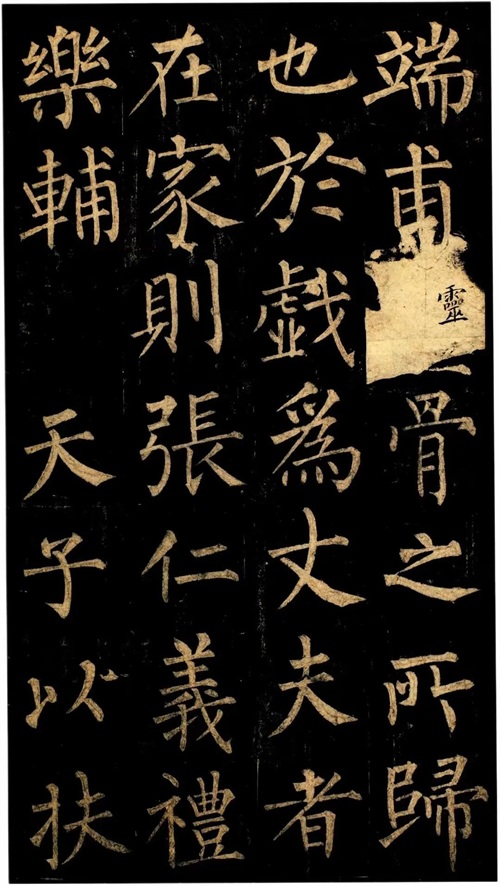 端甫靈骨之所歸
也於戲為丈夫者
在家則張仁義禮
樂輔天子以扶